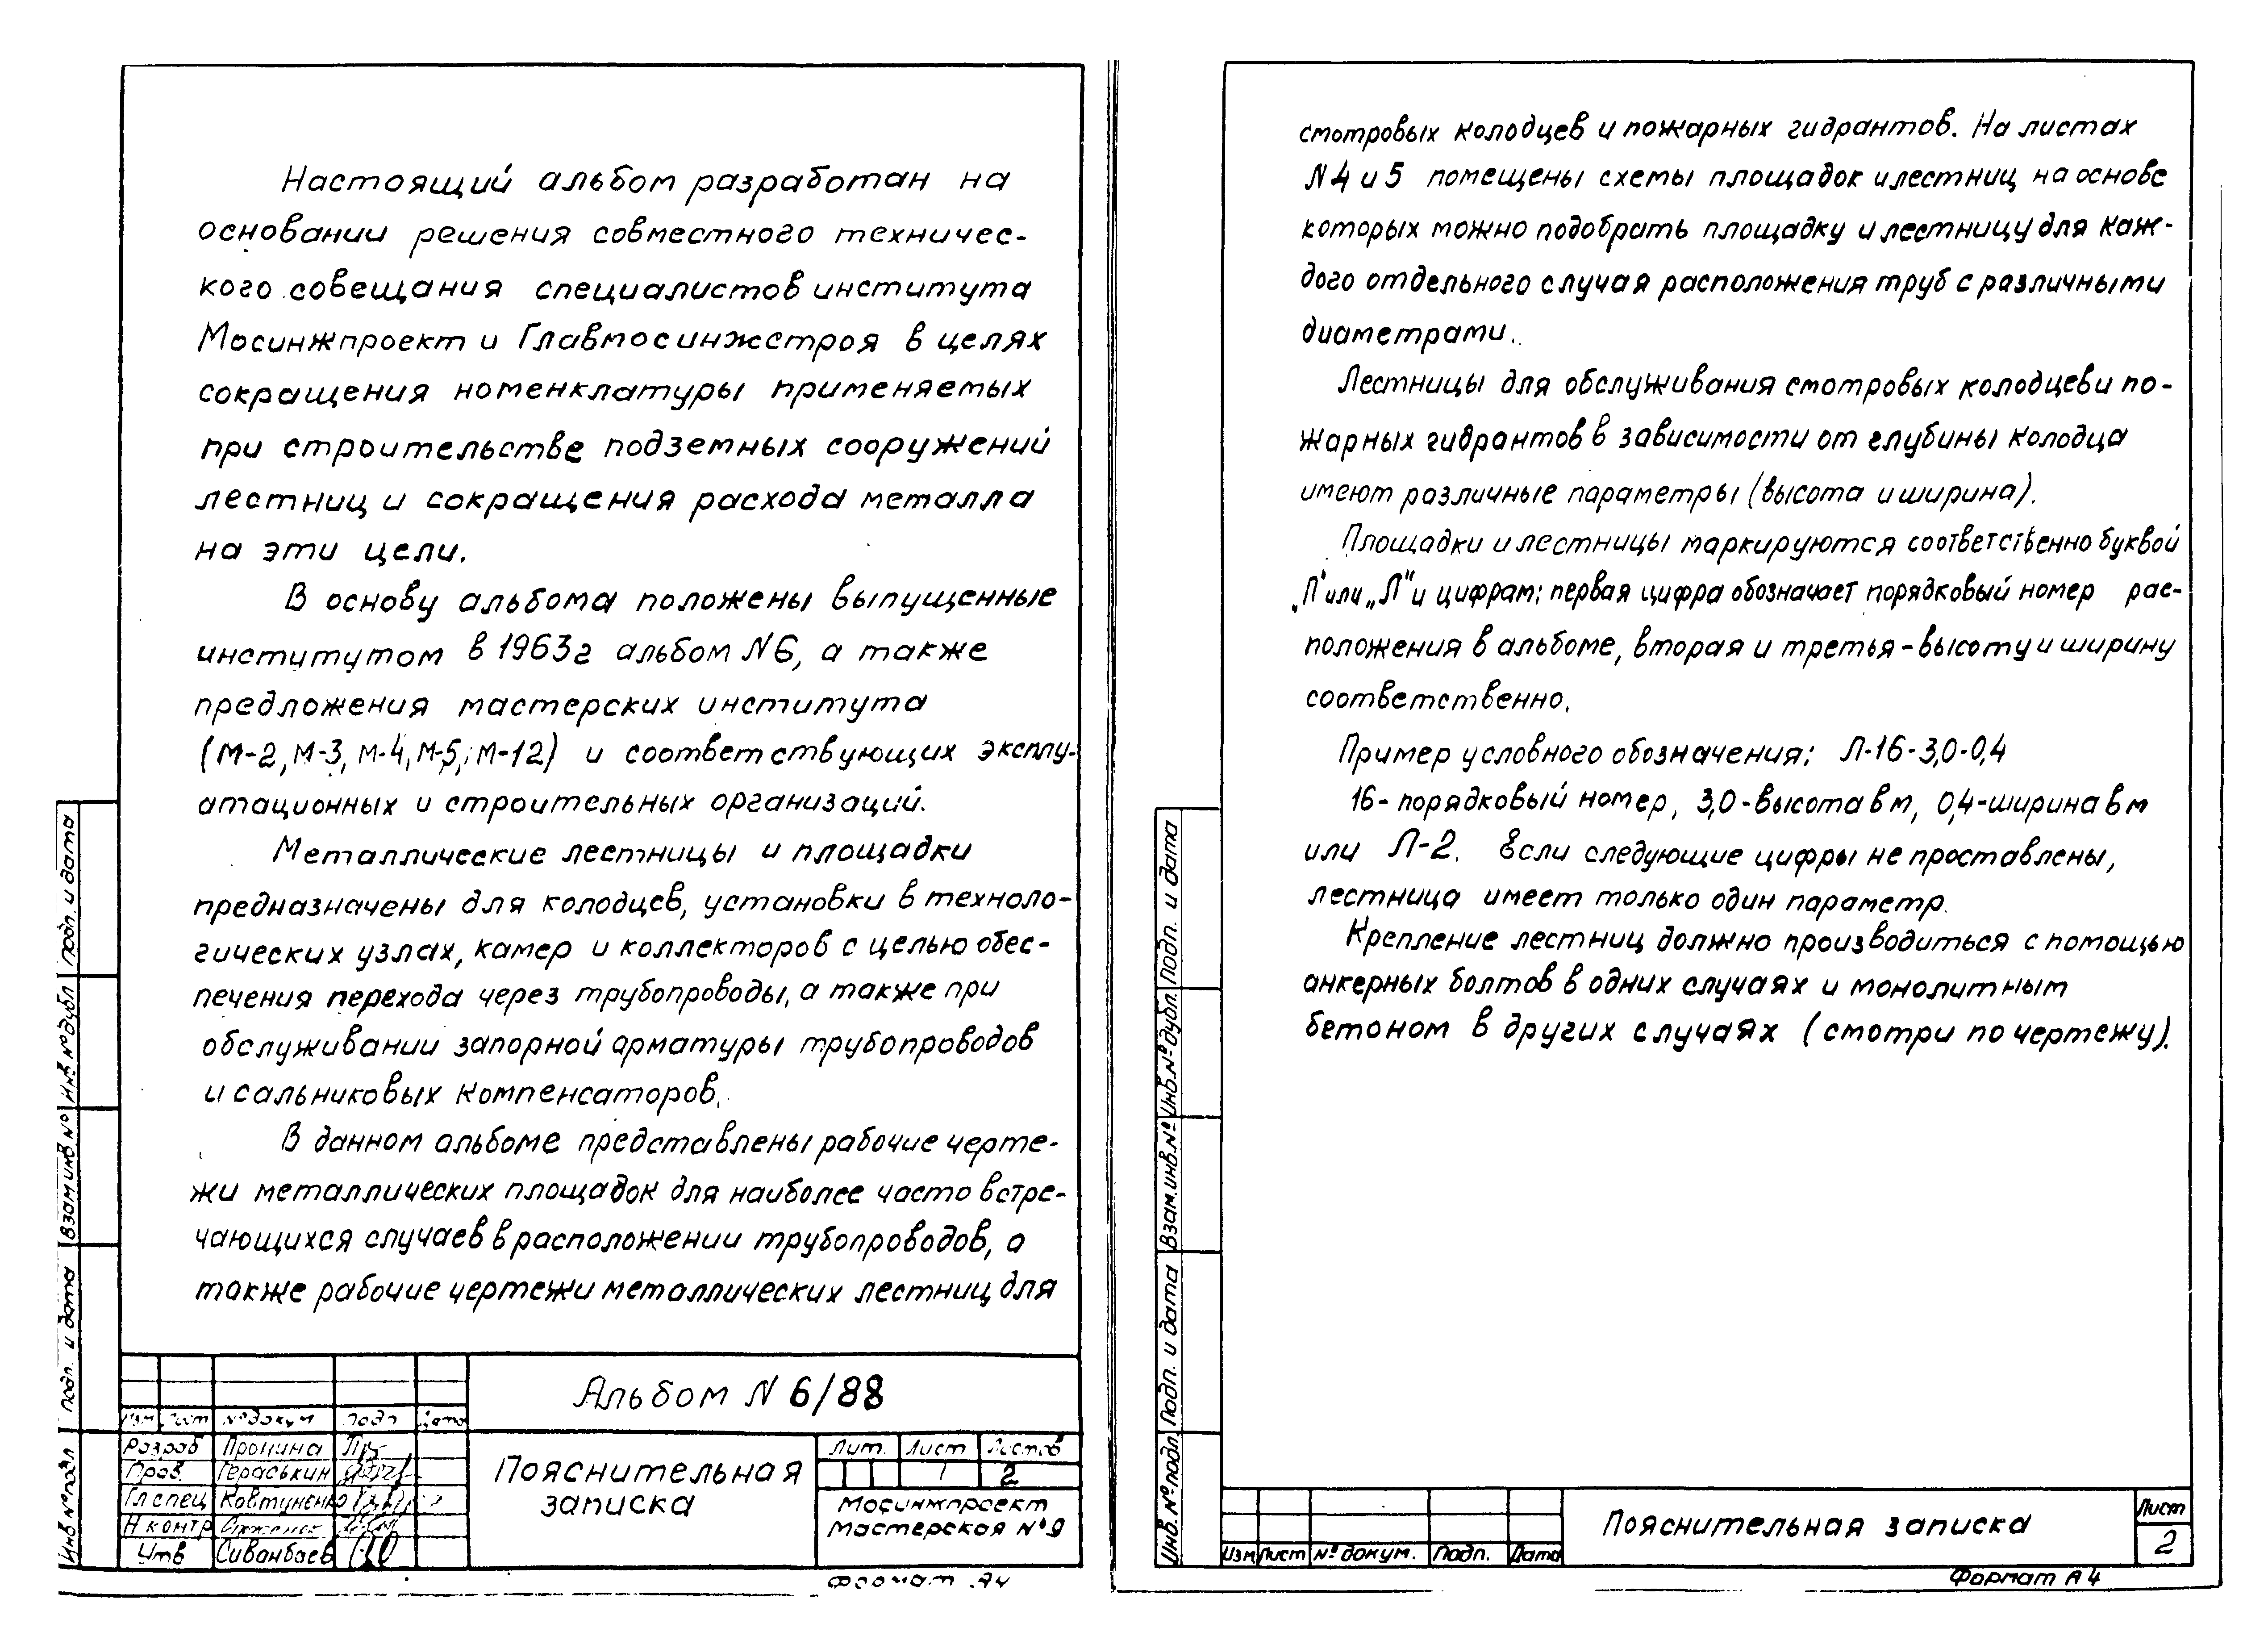 Настоящий альбом разработан на
основании решения совместного техничес-
кого совещания специалистов института
Мосинжпроект и Главмосинжстроя в целях
сокращения номенклатуры применяемых
при строительстве подземных сооружений
лестниц и сокращения расхода металла
на эти цели.
В основу альбома положены выпущенные
институтом в 1963г альбом N6, а также
предложения мастерских института
(М-2, М-3, М-4, М-5, М-12) и соответствующих эксплу-
атационных и строительных организаций.
Металлические лестницы и площадки
предназначены для колодцев, установки в техноло-
гических узлах, камер и коллекторов с целью обес-
печения перехода через трубопроводы, а также при
обслуживании запорной арматуры трубопроводов
и сальниковых компенсаторов.
В данном альбоме представлены рабочие черте-
жи металлических площадок для наиболее часто встре-
чающихся случаев в расположении трубопроводов, а
также рабочие чертежи металлических лестниц для
Альбом N 6/88
Изм Лист №докум Подп Дата
Разраб Пронина
Пров. Гераськин
Гл спец Ковтуненко
Н контр
Утв Сиванбаев
Пояснительная
записка
Лит. Лист Листов
1 2
Мосинжпроект
Мастерская №9
Формат А4
Подп. и дата
Инв №дубл
Взам инв №
Подп. и дата
Инв №подл
смотровых колодцев и пожарных гидрантов. На листах
N4 и 5 помещены схемы площадок и лестниц на основе
которых можно подобрать площадку и лестницу для каж-
дого отдельного случая расположения труб с различными
диаметрами.
Лестницы для обслуживания смотровых колодцев и по-
жарных гидрантов в зависимости от глубины колодца
имеют различные параметры (высота и ширина).
Площадки и лестницы маркируются соответственно буквой
„П" или „Л" и цифрам: первая цифра обозначает порядковый номер рас-
положения в альбоме, вторая и третья - высоту и ширину
соответственно.
Пример условного обозначения: Л-16-3,0-0,4
16- порядковый номер, 3,0-высота в м, 0,4-ширина в м
или Л-2. Если следующие цифры не проставлены,
лестница имеет только один параметр.
Крепление лестниц должно производиться с помощью
анкерных болтов в одних случаях и монолитным
бетоном в других случаях (смотри по чертежу).
Подп. и дата
Инв.№дубл.
Взам.инв.№
Подп. и дата
Инв.№подл
Изм Лист №докум. Подп. Дата
Пояснительная записка
Лист
2
Формат А4